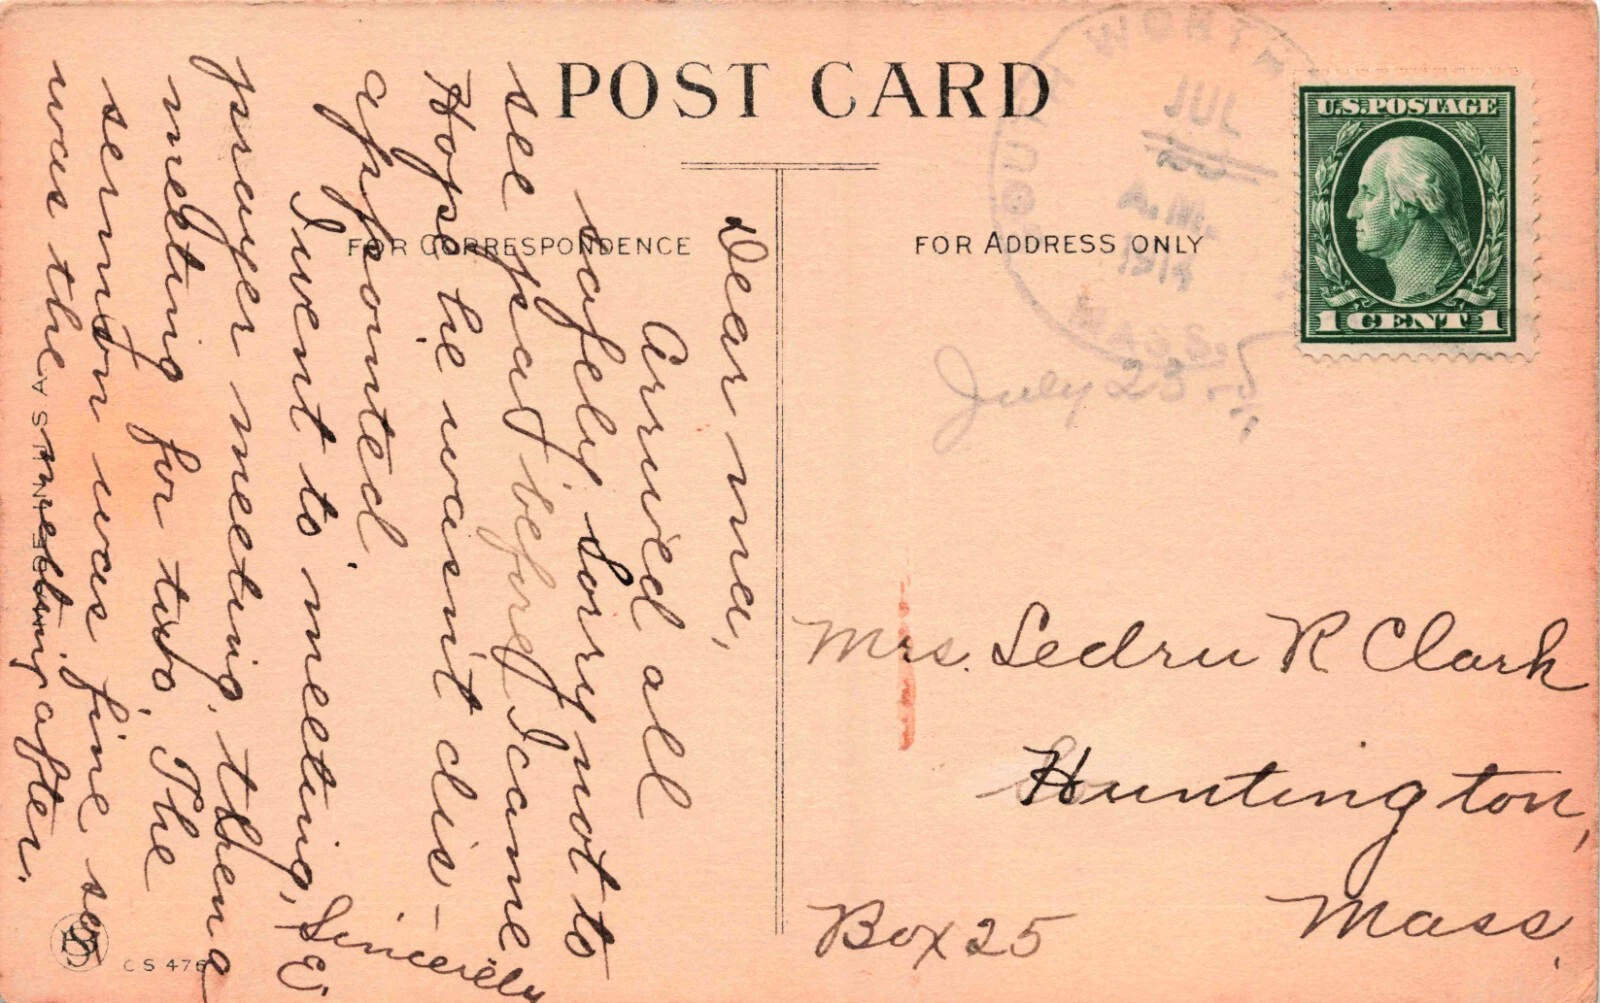 POST CARD
FOR CORRESPONDENCE
FOR ADDRESS ONLY
Dear ma,
Arrived all
safely. Sorry not to
see pa before I came
Hope he wasn't dis-
appointed.
I went to meeting,
prayer meeting, then a
meeting for two, The
sermon was fine so
was the meeting after.
Sincerely
E.
SOUTH WORTH
JUL
A.M.
1914
MASS.
July 23
U.S. POSTAGE
1 CENT 1
Mrs. Ledru R Clark
Huntington,
Mass.
Box 25
C S 476